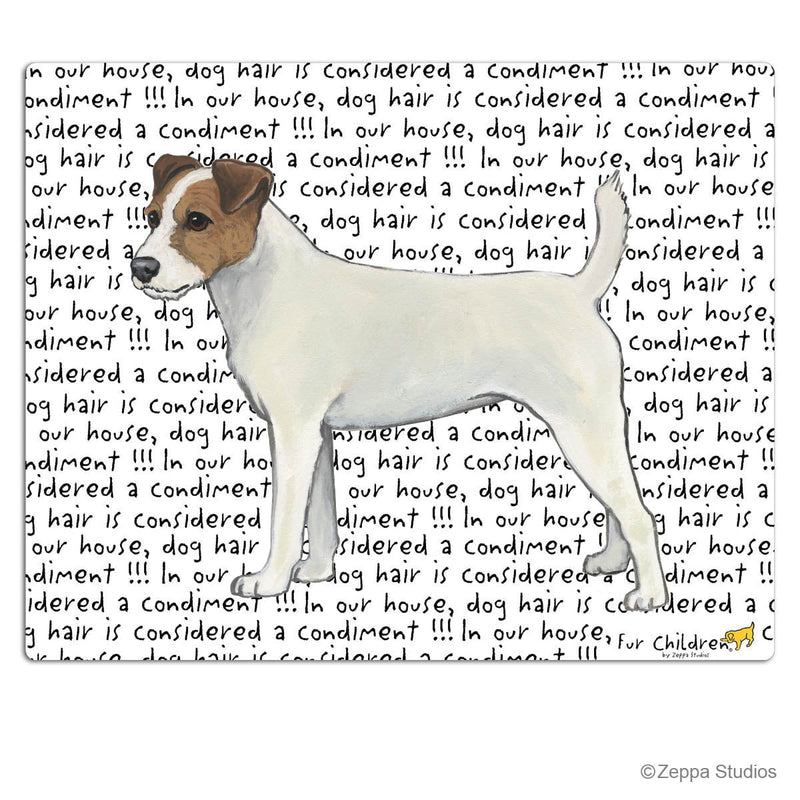 n our house, dog hair is considered a condiment !!! In our hou
ondiment !!! In our house, dog hair is considered a condiment
nsidered a condiment !!! In our house, dog hair is considered a
og hair is considered a condiment !!! In our house, dog hair is
our house, is considered a condiment !! In our house
diment !!! e, dog hair is considered condiment !!!
idered a our house, dog hair i onsidered a
g hair is !!! , dog hair is c
our house, dog h ! In our house,
ndiment !!! In our condiment !!
sidered a condim considered a
og hair is consider In o dog hair is
our house, dog hair nsidered a condim In our house
ndiment !!! In our ho dog hair is consider condiment !!
sidered a condiment our house, dog hair nsidered a
g hair is considered diment !!! In our ho g hair is c
our house, dog hair sidered a condiment ! our house
diment !!! In our dog hair is considered a c diment !!
idered a condiment !!! In our house, dog hair is co dered a c
g hair is considered a condiment !!! In our house, c
our house, dog hair is considered a condiment !!!
Fur Children®
by Zeppa Studios
©Zeppa Studios